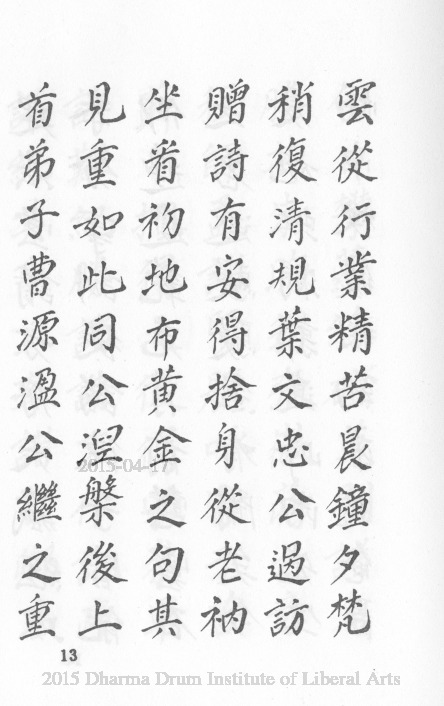 雲從行業精苦晨鐘夕梵
稍復清規葉文忠公過訪
贈詩有安得捨身從老衲
坐看初地布黃金之句其
見重如此同公涅槃後上
首弟子曹源溫公繼之重
2015-04-17
13
2015 Dharma Drum Institute of Liberal Arts